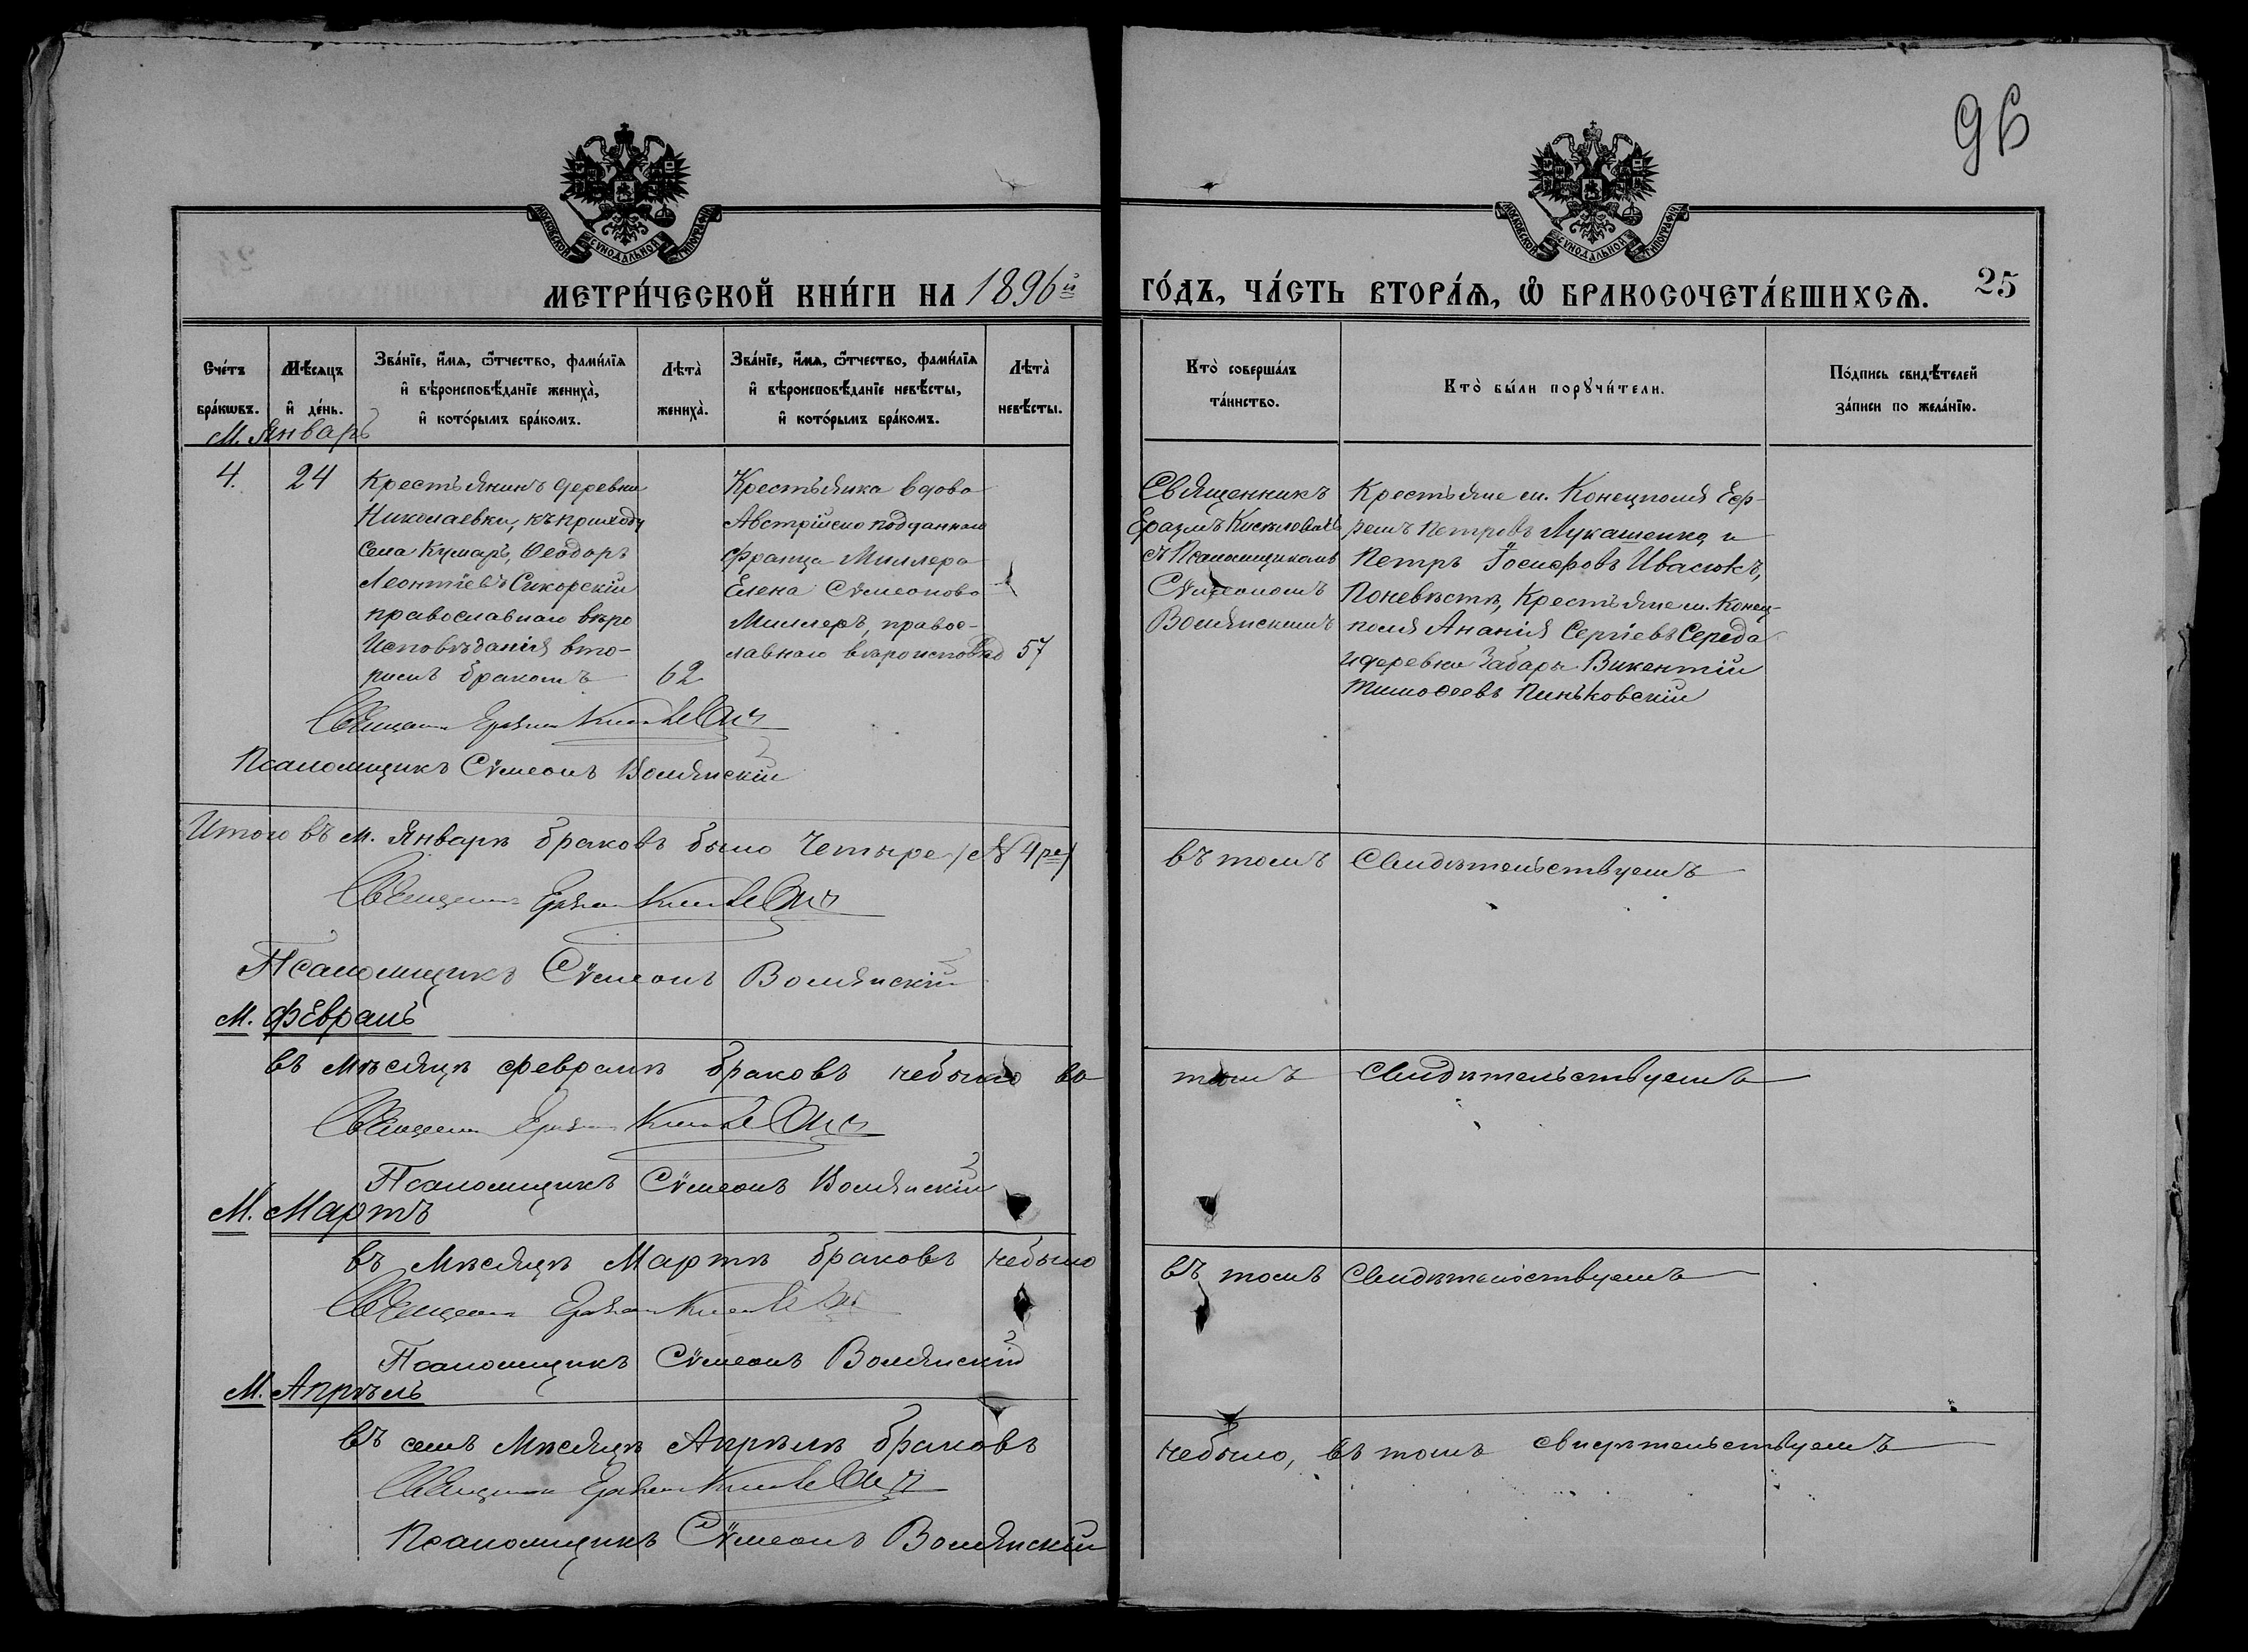 96
МОСКОВСКОЙ СѴНОДАЛЬНОЙ ТИПОГРАФІИ
МОСКОВСКОЙ СѴНОДАЛЬНОЙ ТИПОГРАФІИ
МЕТРИ́ЧЕСКОЙ КНИ́ГИ НА 1896й
ГО́ДЪ, ЧА́СТЬ ВТОРА́Ѧ, Ѽ БРАКОСОЧЕТА́ВШИХСѦ. 25
Сче́тъ бра́кѡвъ.
Мѣ́сяцъ и҆ де́нь.
Зва́нїе, и҆́мѧ, ѻ҆́тчество, фами́лїѧ и҆ вѣроисповѣ́данїе жениха̀, и҆ кото́рымъ бра́комъ.
Лѣта̀ жениха̀.
Зва́нїе, и҆́мѧ, ѻ҆́тчество, фами́лїѧ и҆ вѣроисповѣ́данїе невѣ́сты, и҆ кото́рымъ бра́комъ.
Лѣта̀ невѣ́сты.
Кто̀ соверша́лъ та́инство.
Кто̀ бы́ли порꙋчи́тели.
По́дпись свидѣ́телей за́писи по жела́нїю.
М. Январь
4.
24
Крестьянинъ деревни
Николаевки, къ приходу
села Кумаръ, Ѳеодоръ
Леонтіевъ Сикорскій
православнаго вѣро
исповѣданія вто-
рымъ бракомъ
62
Крестьянка вдова
Австрійско подданнаго
Франца Миллера
Елена Сѵмеонова
Миллеръ, право-
славнаго вѣроисповѣд
57
Священникъ
Еразмъ
съ Псаломщикомъ
Сѵмеономъ
Волянскимъ
Крестьяне м. Конецполя Еф-
ремъ Петровъ Лукашенко и
Петръ Іосифовъ Ивасюкъ,
По невѣстѣ, Крестьяне м. Конец-
поля Ананія Сергіевъ Середа
и деревни Забары Викентій
Тимоѳеевъ Пиньковскій
Священникъ Еразмъ
Псаломщикъ Сѵмеонъ Волянскій
Итого въ м. Январѣ браковъ было Четыре (№ 4ре)
въ томъ Свидѣтельствуемъ
Священникъ Еразмъ
Псаломщикъ Сѵмеонъ Волянскій
М. Февраль
въ мѣсяцѣ февралѣ браковъ небыло во
томъ Свидѣтельствуемъ
Священникъ Еразмъ
Псаломщикъ Сѵмеонъ Волянскій
М. Мартъ
въ Мѣсяцѣ Мартѣ браковъ небыло
въ томъ Свидѣтельствуемъ
Священникъ Еразмъ
Псаломщикъ Сѵмеонъ Волянскій
М. Апрѣль
въ семъ Мѣсяцѣ Апрѣлѣ браковъ
небыло, въ томъ свидѣтельствуемъ
Священникъ Еразмъ
Псаломщикъ Сѵмеонъ Волянскій